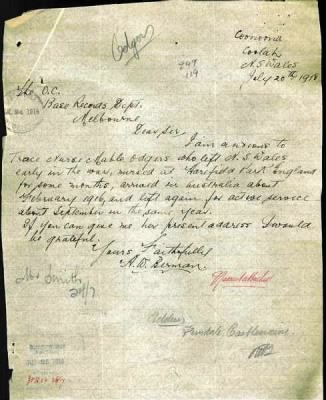 Odgers
Coonoona
Coolah
N.S. Wales
July 20th 1918
The O.C.
Base Records Dept.
Melbourne
Dear Sir
I am anxious to
trace Nurse Mable Odgers who left N.S. Wales
early in the war, nursed at Harefield Park England
for some months, arrived in Australia about
February 1916, and left again for active service
about September in the same year.
If you can give me her present address I would
be grateful.
Yours Faithfully
A. W. Berman.
Mr Smith
24/7